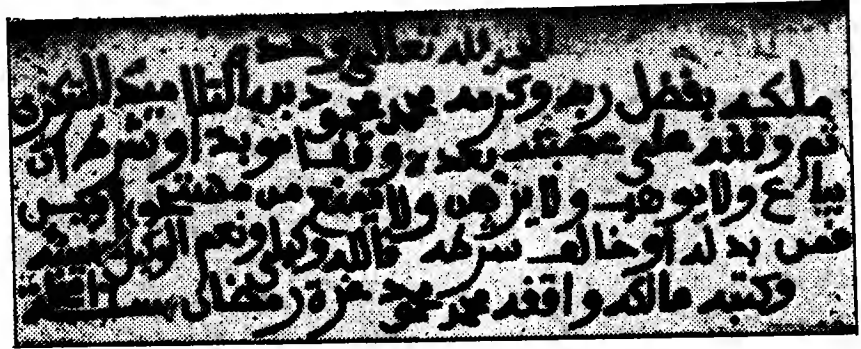 الحمد لله تعالى وحده
ملكه بفضل ربه وكرمه محمد محمود بن التلاميد التركزى
ثم وقفه على عصبته بعده وقفا مؤبدا وشرط ان
يباع ولا يوهب ولا يرهن ولا يمنع من
فمن بدله او خالف شرطه فالله وكيلى ونعم الوكيل
وكتبه مالكه واقفه محمد محمود غرة رمضان سنة